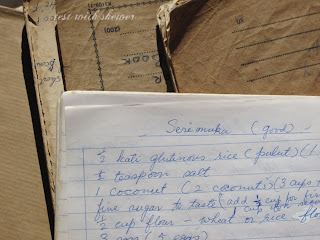 rest with shower
BOOK
(200)
Serimuka (good)
½ kati glutinous rice (pulut) (1
½ teaspoon salt
1 coconut (2 coconuts) (3 cups
fine sugar to taste (add ½ cup for fine
½ cup flour - wheat or rice flo
3 eggs (5 eggs)